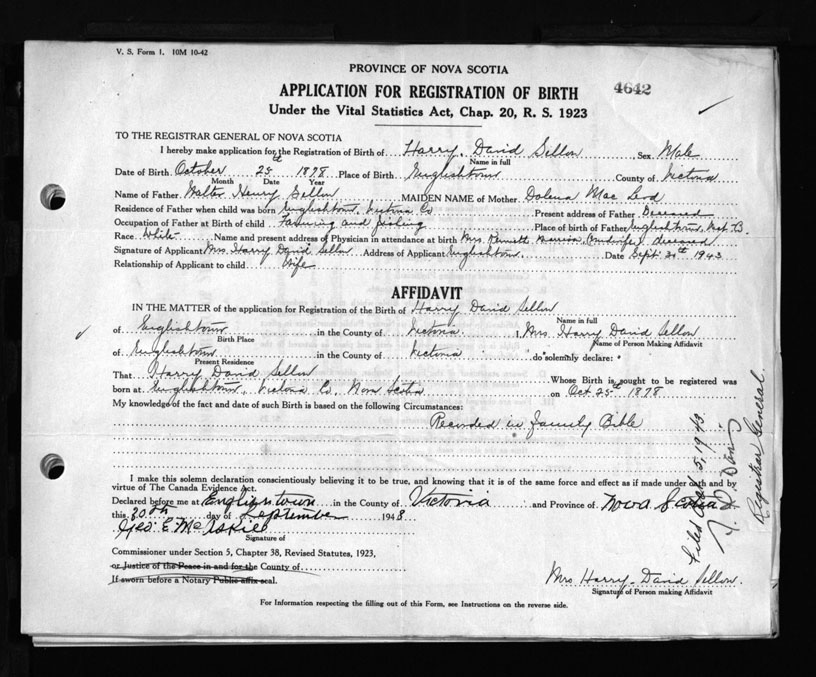 V. S. Form 1. 10M 10-42
PROVINCE OF NOVA SCOTIA
APPLICATION FOR REGISTRATION OF BIRTH 4642
Under the Vital Statistics Act, Chap. 20, R. S. 1923
TO THE REGISTRAR GENERAL OF NOVA SCOTIA
I hereby make application for the Registration of Birth of Harry, David Sellon Sex Male
Name in full
Date of Birth October 25th 1878 Place of Birth Englishtown County of Victoria
Month Date Year
Name of Father Walter Henry Sellon MAIDEN NAME of Mother Dolena Mac Leod
Residence of Father when child was born Englishtown, Victoria Co Present address of Father Deceased
Occupation of Father at Birth of child Farming and fishing Place of birth of Father Englishtown,
Race White Name and present address of Physician in attendance at birth Mrs. (midwife) deceased
Signature of Applicant Mrs. Harry David Sellon Address of Applicant Englishtown. Date Sept. 30th 1943
Relationship of Applicant to child Wife
AFFIDAVIT
IN THE MATTER of the application for Registration of the Birth of Harry David Sellon
Name in full
of Englishtown in the County of Victoria I, Mrs Harry David Sellon
Birth Place Name of Person Making Affidavit
of Englishtown in the County of Victoria do solemnly declare:
Present Residence
That Harry David Sellon Whose Birth is sought to be registered was
born at Englishtown, Victoria Co, Nova Scotia on Oct 25th 1878
My knowledge of the fact and date of such Birth is based on the following Circumstances:
Recorded in family Bible
I make this solemn declaration conscientiously believing it to be true, and knowing that it is of the same force and effect as if made under oath and by
virtue of The Canada Evidence Act.
Declared before me at Englishtown in the County of Victoria and Province of Nova Scotia
this 30th day of September 1943
Geo. E. McAskill
Signature of
Commissioner under Section 5, Chapter 38, Revised Statutes, 1923,
or Justice of the Peace in and for the County of
If sworn before a Notary Public affix seal.
Mrs Harry David Sellon.
Signature of Person making Affidavit
For Information respecting the filling out of this Form, see Instructions on the reverse side.
Filed 5, 1943
Registrar General